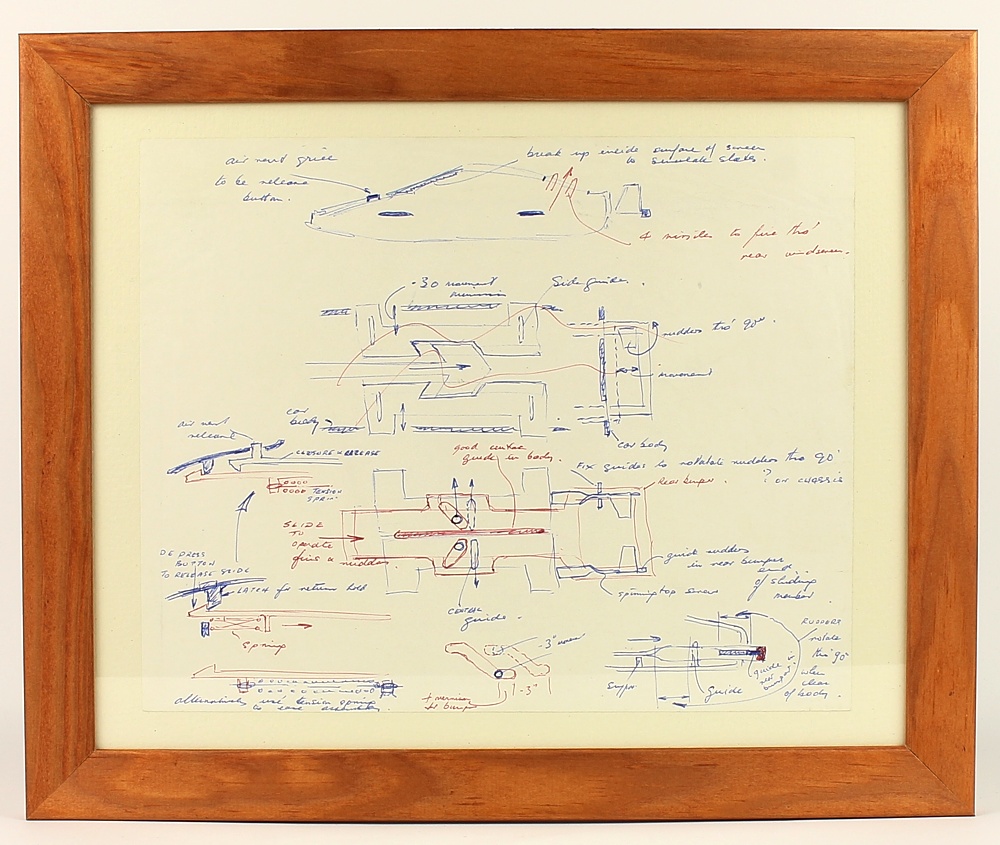 air vent grill
to be release
button.
break up inside surface of screen
to simulate slats.
4 missiles to fire thro'
rear windscreen.
.30 movement
Side guides.
rudders thro' 90°
movement
car
body
car body
air vent
release
CLOSURE & RELEASE
TENSION
SPRING
good central
guide in body.
FIX guides to rotate rudders thro 90°
? ON CHASSIS
Rear bumper
SLIDE
TO
operate
fins & rudders.
DEPRESS
BUTTON
TO RELEASE SLIDE
LATCH for return hold
Spring
CENTRAL
guide.
guide rudders
in rear bumper
end
of sliding
member.
spinning top screws
RUDDERS
rotate
thro' 90°
when
clear
of body.
guide in
rear
bumper.
guide
.3"
.3"
alternatively use tension spring
to ease assembly.